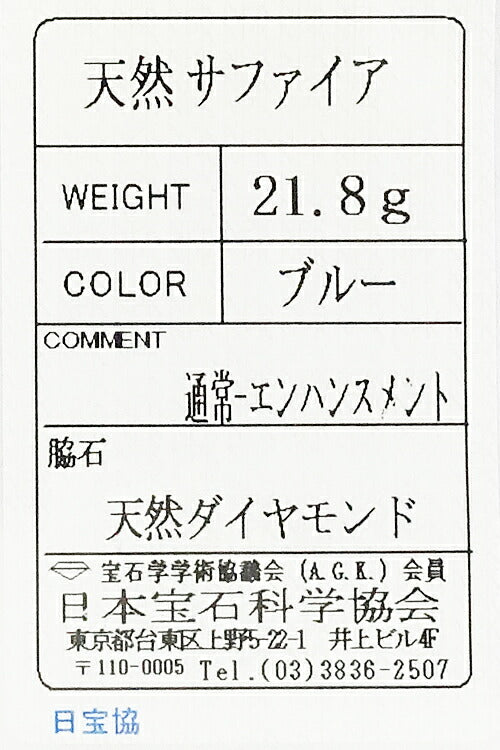 天然サファイア
WEIGHT 21.8g
COLOR ブルー
COMMENT
通常-エンハンスメント
脇石
天然ダイヤモンド
宝石学学術協議会 (A.G.K.) 会員
日本宝石科学協会
東京都台東区上野5-22-1 井上ビル4F
〒110-0005 Tel.(03)3836-2507
日宝協